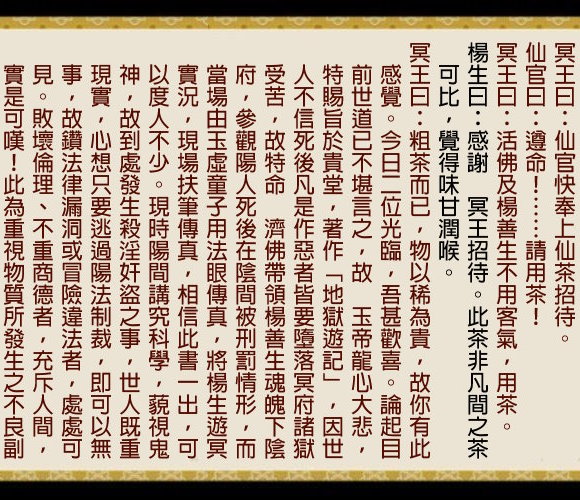 冥王曰：仙官快奉上仙茶招待。
仙官曰：遵命！……請用茶！
冥王曰：活佛及楊善生不用客氣，用茶。
楊生曰：感謝　冥王招待。此茶非凡間之茶
可比，覺得味甘潤喉。
冥王曰：粗茶而已，物以稀為貴，故你有此
感覺。今日二位光臨，吾甚歡喜。論起目
前世道已不堪言之，故　玉帝龍心大悲，
特賜旨於貴堂，著作「地獄遊記」，因世
人不信死後凡是作惡者皆要墮落冥府諸獄
受苦，故特命　濟佛帶領楊善生魂魄下陰
府，參觀陽人死後在陰間被刑罰情形，而
當場由玉虛童子用法眼傳真，將楊生遊冥
實況，現場扶筆傳真，相信此書一出，可
以度人不少。現時陽間講究科學，藐視鬼
神，故到處發生殺淫奸盜之事，世人既重
現實，心想只要逃過陽法制裁，即可以無
事，故鑽法律漏洞或冒險違法者，處處可
見。敗壞倫理、不重商德者，充斥人間，
實是可嘆！此為重視物質所發生之不良副